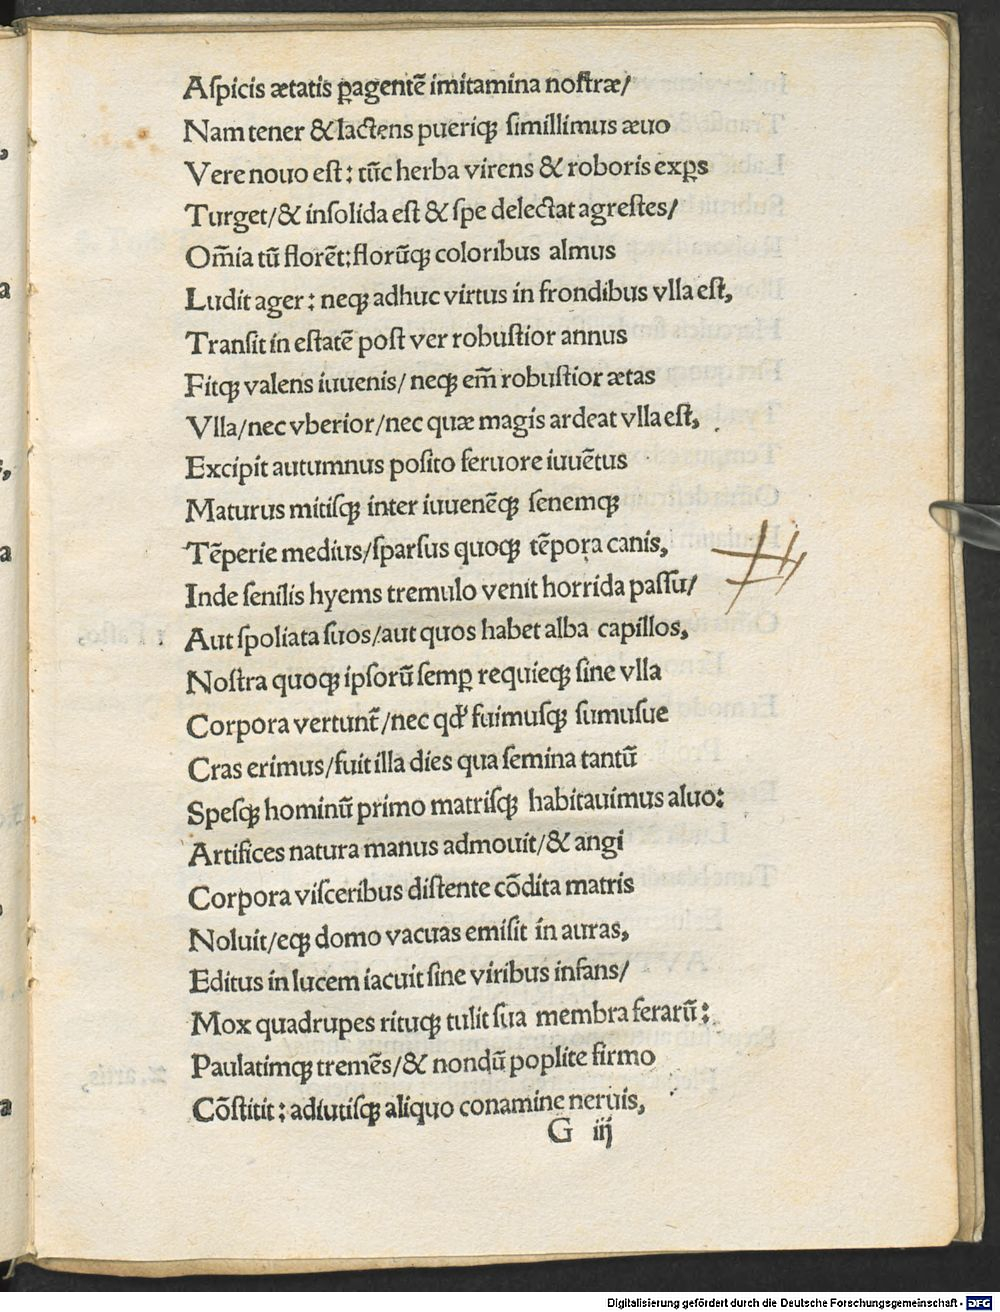 Aſpicis ætatis ꝑagentē imitamina noſtræ/
Nam tener & lactens pueriqꝫ ſimillimus æuo
Vere nouo eſt: tūc herba virens & roboris exꝑs
Turget/& inſolida eſt & ſpe delectat agreſtes/
Om̄ia tū florēt: florūqꝫ coloribus almus
Ludit ager: neqꝫ adhuc virtus in frondibus vlla eſt,
Tranſit in eſtatē poſt ver robuſtior annus
Fitqꝫ valens iuuenis/ neqꝫ em̄ robuſtior ætas
Vlla/nec vberior/nec quæ magis ardeat vlla eſt,
Excipit autumnus poſito feruore iuuētus
Maturus mitiſqꝫ inter iuuenēqꝫ ſenemqꝫ
Tēperie medius/ſparſus quoqꝫ tēpora canis,
Inde ſenilis hyems tremulo venit horrida paſſu/
Aut ſpoliata ſuos/aut quos habet alba capillos,
Noſtra quoqꝫ ipſorū ſemꝑ requieqꝫ ſine vlla
Corpora vertunt̄/nec qd' fuimuſqꝫ ſumuſue
Cras erimus/fuit illa dies qua ſemina tantū
Speſqꝫ hominū primo matriſqꝫ habitauimus aluo:
Artifices natura manus admouit/& angi
Corpora viſceribus diſtente cōdita matris
Noluit/eqꝫ domo vacuas emiſit in auras,
Editus in lucem iacuit ſine viribus infans/
Mox quadrupes rituqꝫ tulit ſua membra ferarū:
Paulatimqꝫ tremēs/& nondū poplite firmo
Cōſtitit: adiutiſqꝫ aliquo conamine neruis,
G iij
Digitalisierung gefördert durch die Deutsche Forschungsgemeinschaft - DFG